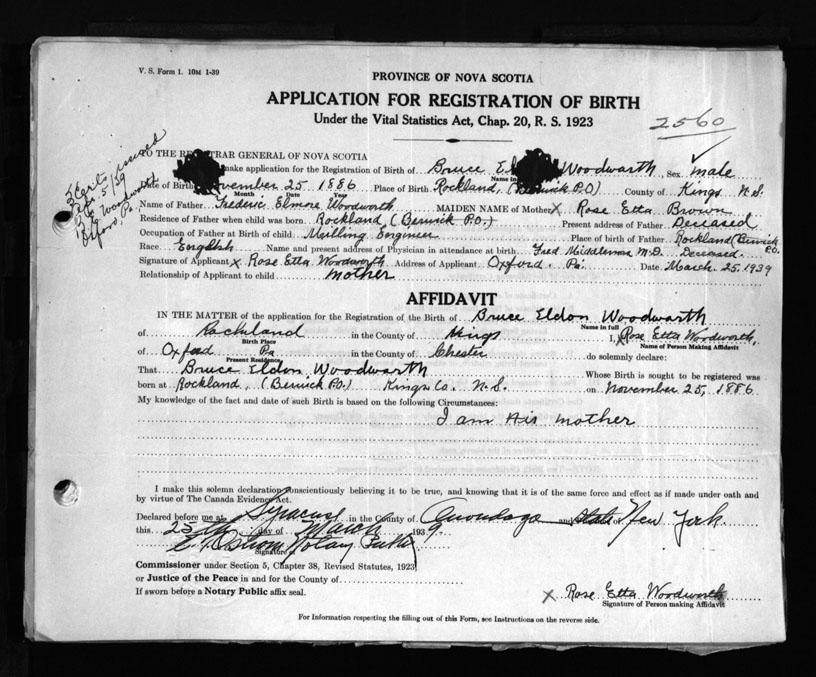 V. S. Form 1. 10M 1-39
PROVINCE OF NOVA SCOTIA
APPLICATION FOR REGISTRATION OF BIRTH
Under the Vital Statistics Act, Chap. 20, R. S. 1923
2560
issued
5/39
Oxford, Pa.
TO THE REGISTRAR GENERAL OF NOVA SCOTIA
make application for the Registration of Birth of Bruce Woodworth, Sex male
Name in
Date of Birth November 25 1886 Place of Birth Rockland, (Berwick P.O) County of Kings N.S.
Month Date Year
Name of Father Frederic Elmore Woodworth MAIDEN NAME of Mother X Rose Etta Brown
Residence of Father when child was born Rockland (Berwick P.O.) Present address of Father Deceased
Occupation of Father at Birth of child Milling Engineer Place of birth of Father Rockland (Berwick P.O.
Race English Name and present address of Physician in attendance at birth Fred Middlemas M.D. Deceased.
Signature of Applicant x Rose Etta Woodworth Address of Applicant Oxford, Pa. Date March 25, 1939
Relationship of Applicant to child mother
AFFIDAVIT
IN THE MATTER of the application for the Registration of the Birth of Bruce Eldon Woodworth
Name in full
of Rockland in the County of Kings I, x Rose Etta Woodworth,
Birth Place Name of Person Making Affidavit
of Oxford Pa in the County of Chester do solemnly declare:
Present Residence
That Bruce Eldon Woodworth Whose Birth is sought to be registered was
born at Rockland, (Berwick P.O.) Kings Co. N.S. on November 25, 1886
My knowledge of the fact and date of such Birth is based on the following Circumstances:
I am His mother
I make this solemn declaration conscientiously believing it to be true, and knowing that it is of the same force and effect as if made under oath and
by virtue of The Canada Evidence Act.
Declared before me at Syracuse in the County of Onondaga and State of New York
this 25th day of March 1939.
Notary Public
Signature of
Commissioner under Section 5, Chapter 38, Revised Statutes, 1923
or Justice of the Peace in and for the County of
If sworn before a Notary Public affix seal.
x Rose Etta Woodworth
Signature of Person making Affidavit
For Information respecting the filling out of this Form, see Instructions on the reverse side.